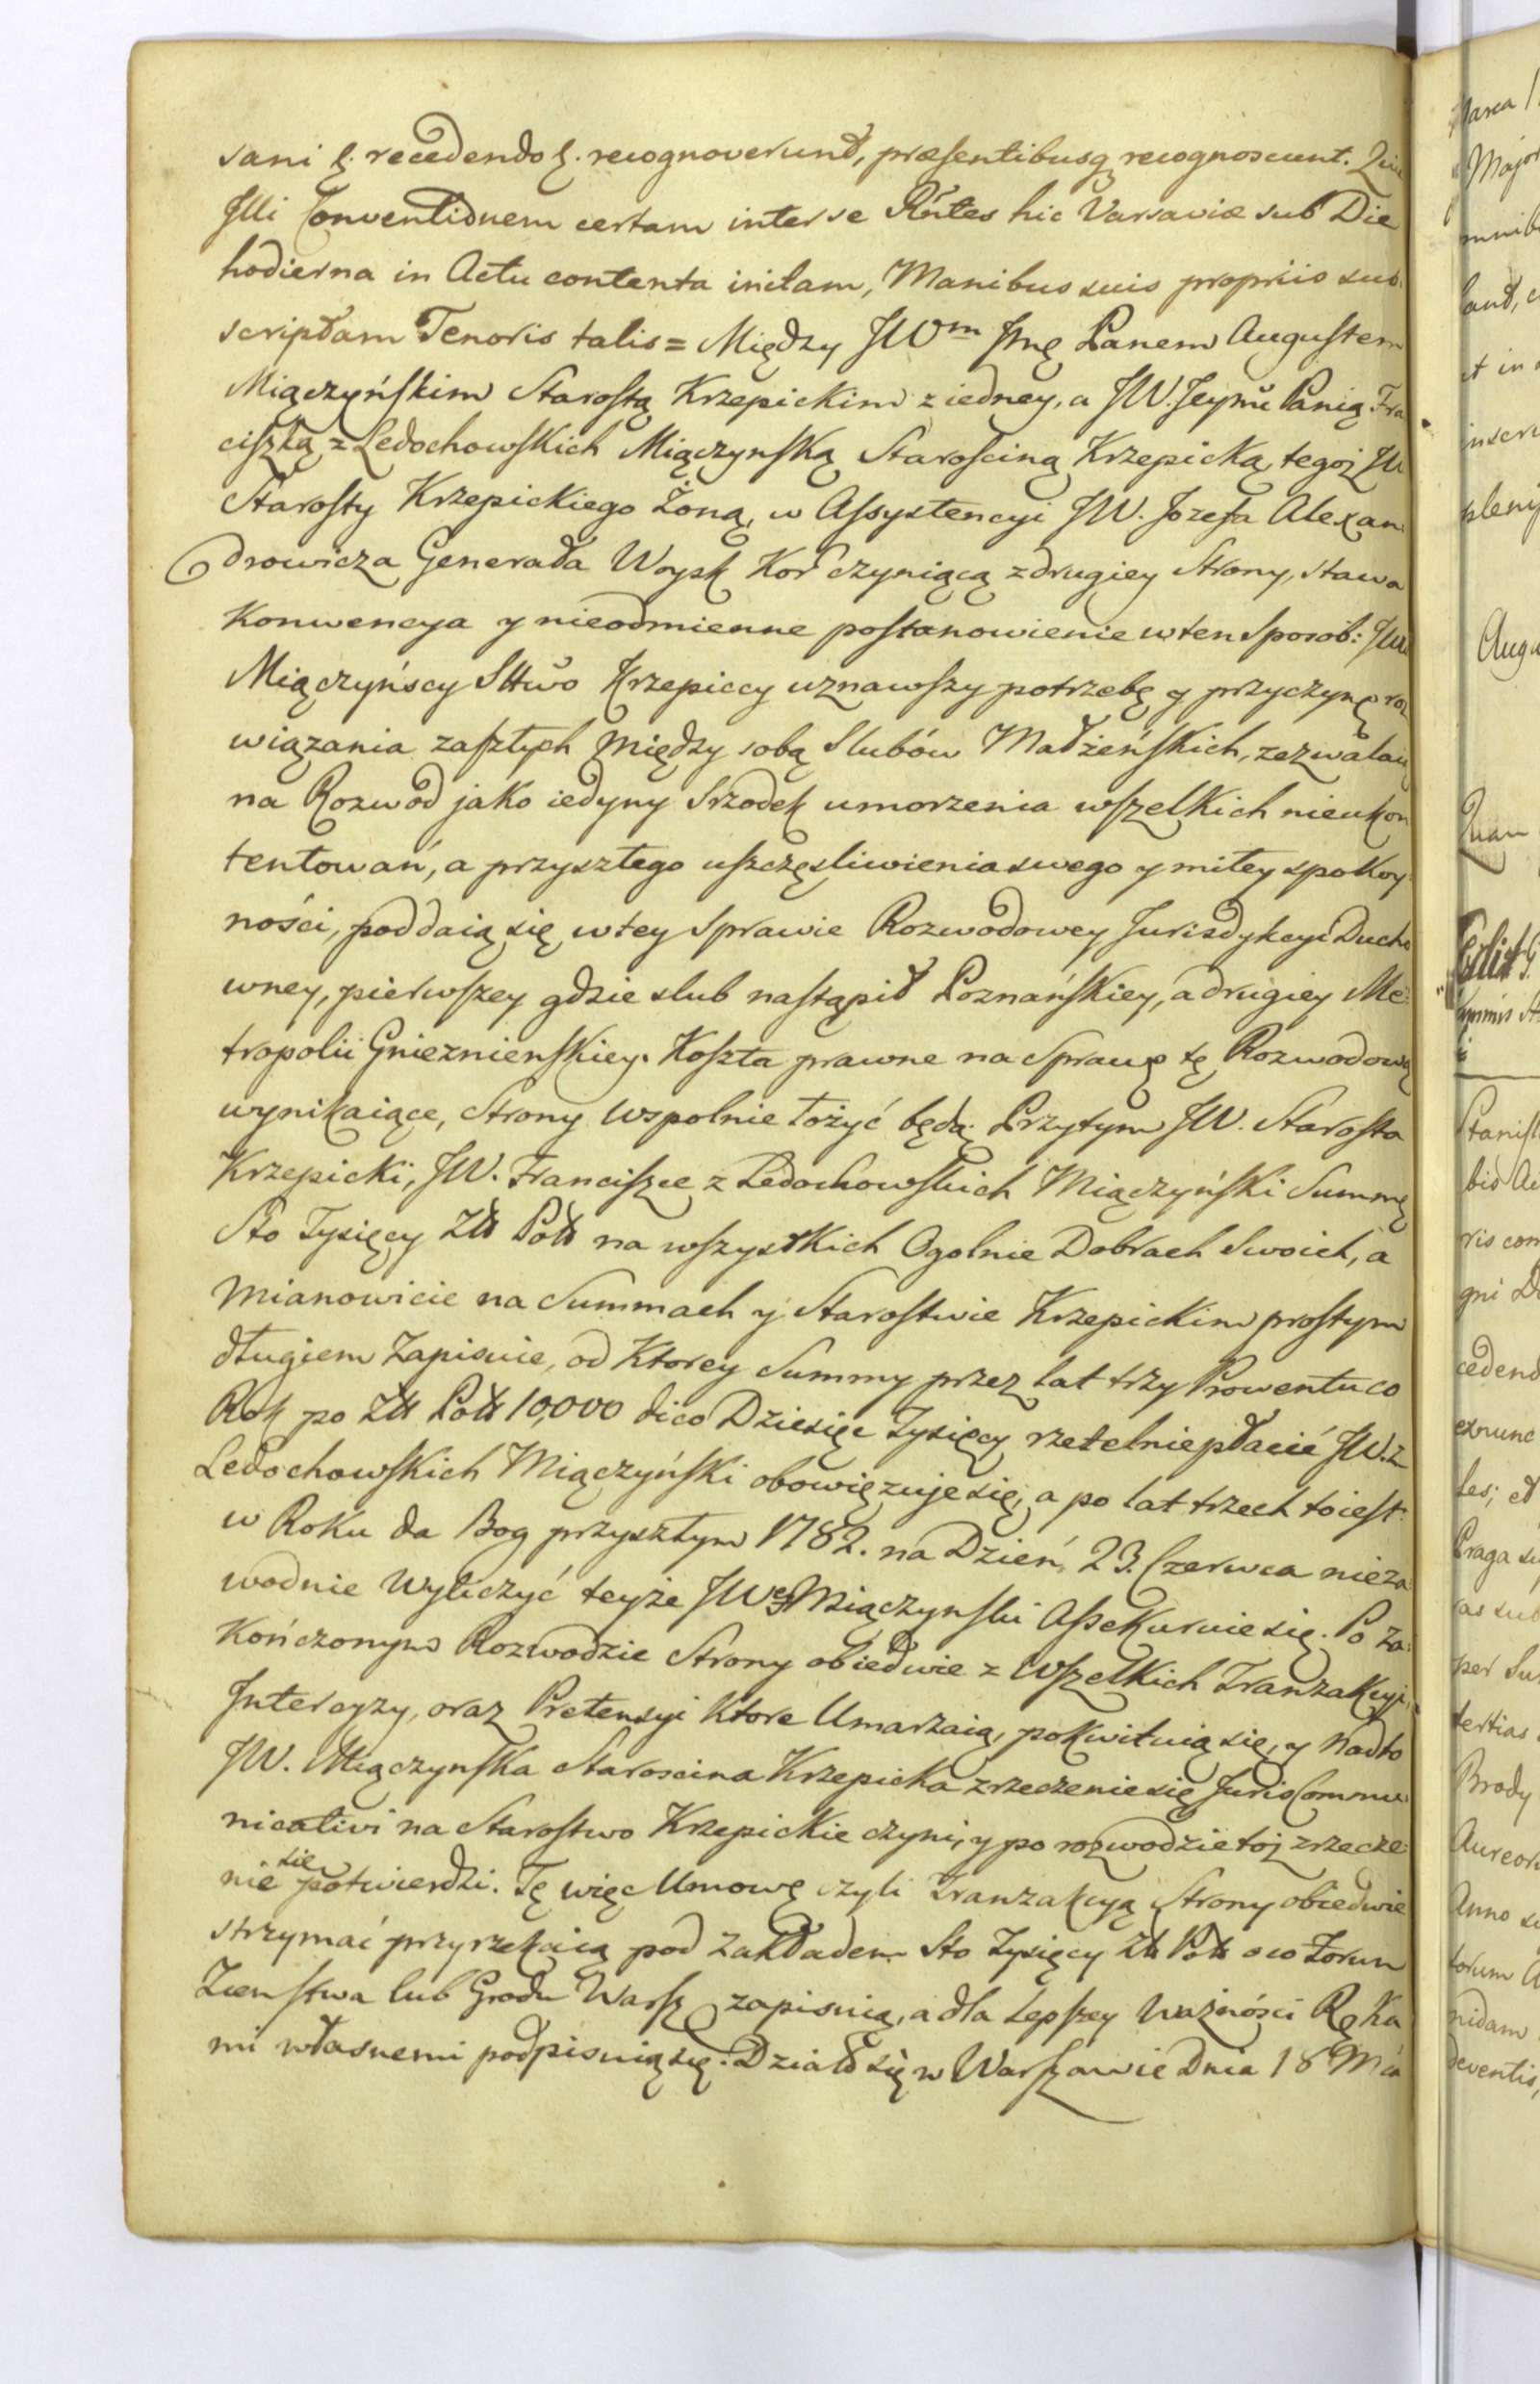 sani &. recedendo &. recognoverunt, præsentibusq recognoscunt. Quia
Illi Conventionem certam inter se Rñtes hic Varsaviæ sub Die
hodierna in Actu contenta initam, Manibus suis propriis sub
scriptam Tenoris talis = Między JWm Jmę Panem Augustem
Miączyńskim Starostą Krzepickim z iedney, a JW. Jeymć Panią Fra
ciszką z Ledochowskich Miączynską Starościną Krzepicką, tegoż JW
Starosty Krzepickiego Żoną, w Assystencyi JW. Jozefa Alexan
drowicza Generała Woysk Kor czyniącą z drugiey Strony, stawa
Konwencya y nieodmienne postanowienie w ten Sposob: JWW.
Miączyńscy Sttwo Krzepiccy uznawszy potrzebę y przyczynę roz
wiązania zaszłych między sobą Slubów Małżeńskich, zezwalaią
na Rozwód jako iedyny Srzodek umorzenia wszelkich nieukon
tentowań, a przyszłego uszczęsliwienia swego y miłey spokoy
ności, poddaią się w tey Sprawie Rozwodowey Jurisdykcyi Ducho
wney, pierwszey gdzie slub nastąpił Poznańskiey, a drugiey Me
tropolii Gnieznienskiey. Koszta prawne na Sprawę tę Rozwodową
wynikaiące, Strony wspolnie łożyć będą. Przytym JW. Starosta
Krzepicki, JW. Franciszce z Ledochowskich Miączyński Summę
Sto Tysięcy Złł Polł na wszystkich Ogolnie Dobrach Swoich, a
mianowicie na Summach y Starostwie Krzepickim prostym
długiem Zapisuie, od Ktorey Summy przez lat trzy Prowentu co
Rok po Złł Polł 10,000 dico Dziesięc Tysięcy rzetelnie płacić JW. z
Ledochowskich Miączyński obowięzuje się, a po lat trzech to iest
w Roku da Bog przyszłym 1782. na Dzień 23. Czerwca nieza
wodnie Wyliczyć teyże JWey Miączynski Assekuruie się. Po Za
kończonym Rozwodzie Strony obiedwie z Wszelkich Tranzakcyi,
Intercyzy, oraz Pretensyi Ktore Umarzaią, pokwituią się, y nadto
JW. Miączynska Starościna Krzepicka zrzeczenie się Juris Commu
nicativi na Starostwo Krzepickie czyni, y po rozwodzie toż zrzecze
nie się potwierdzi. Tę więc Umowę czyli Tranzakcyą Strony obiedwie
strzymać przyrzekaią pod Zakładem Sto Tysięcy Złł Polł o co Forum
Ziemstwa lub Grodu Warsz zapisuią, a dla Lepszey Ważności Ręka
mi własnemi podpisuią się. Działo się w Warszawie Dnia 18 Mca